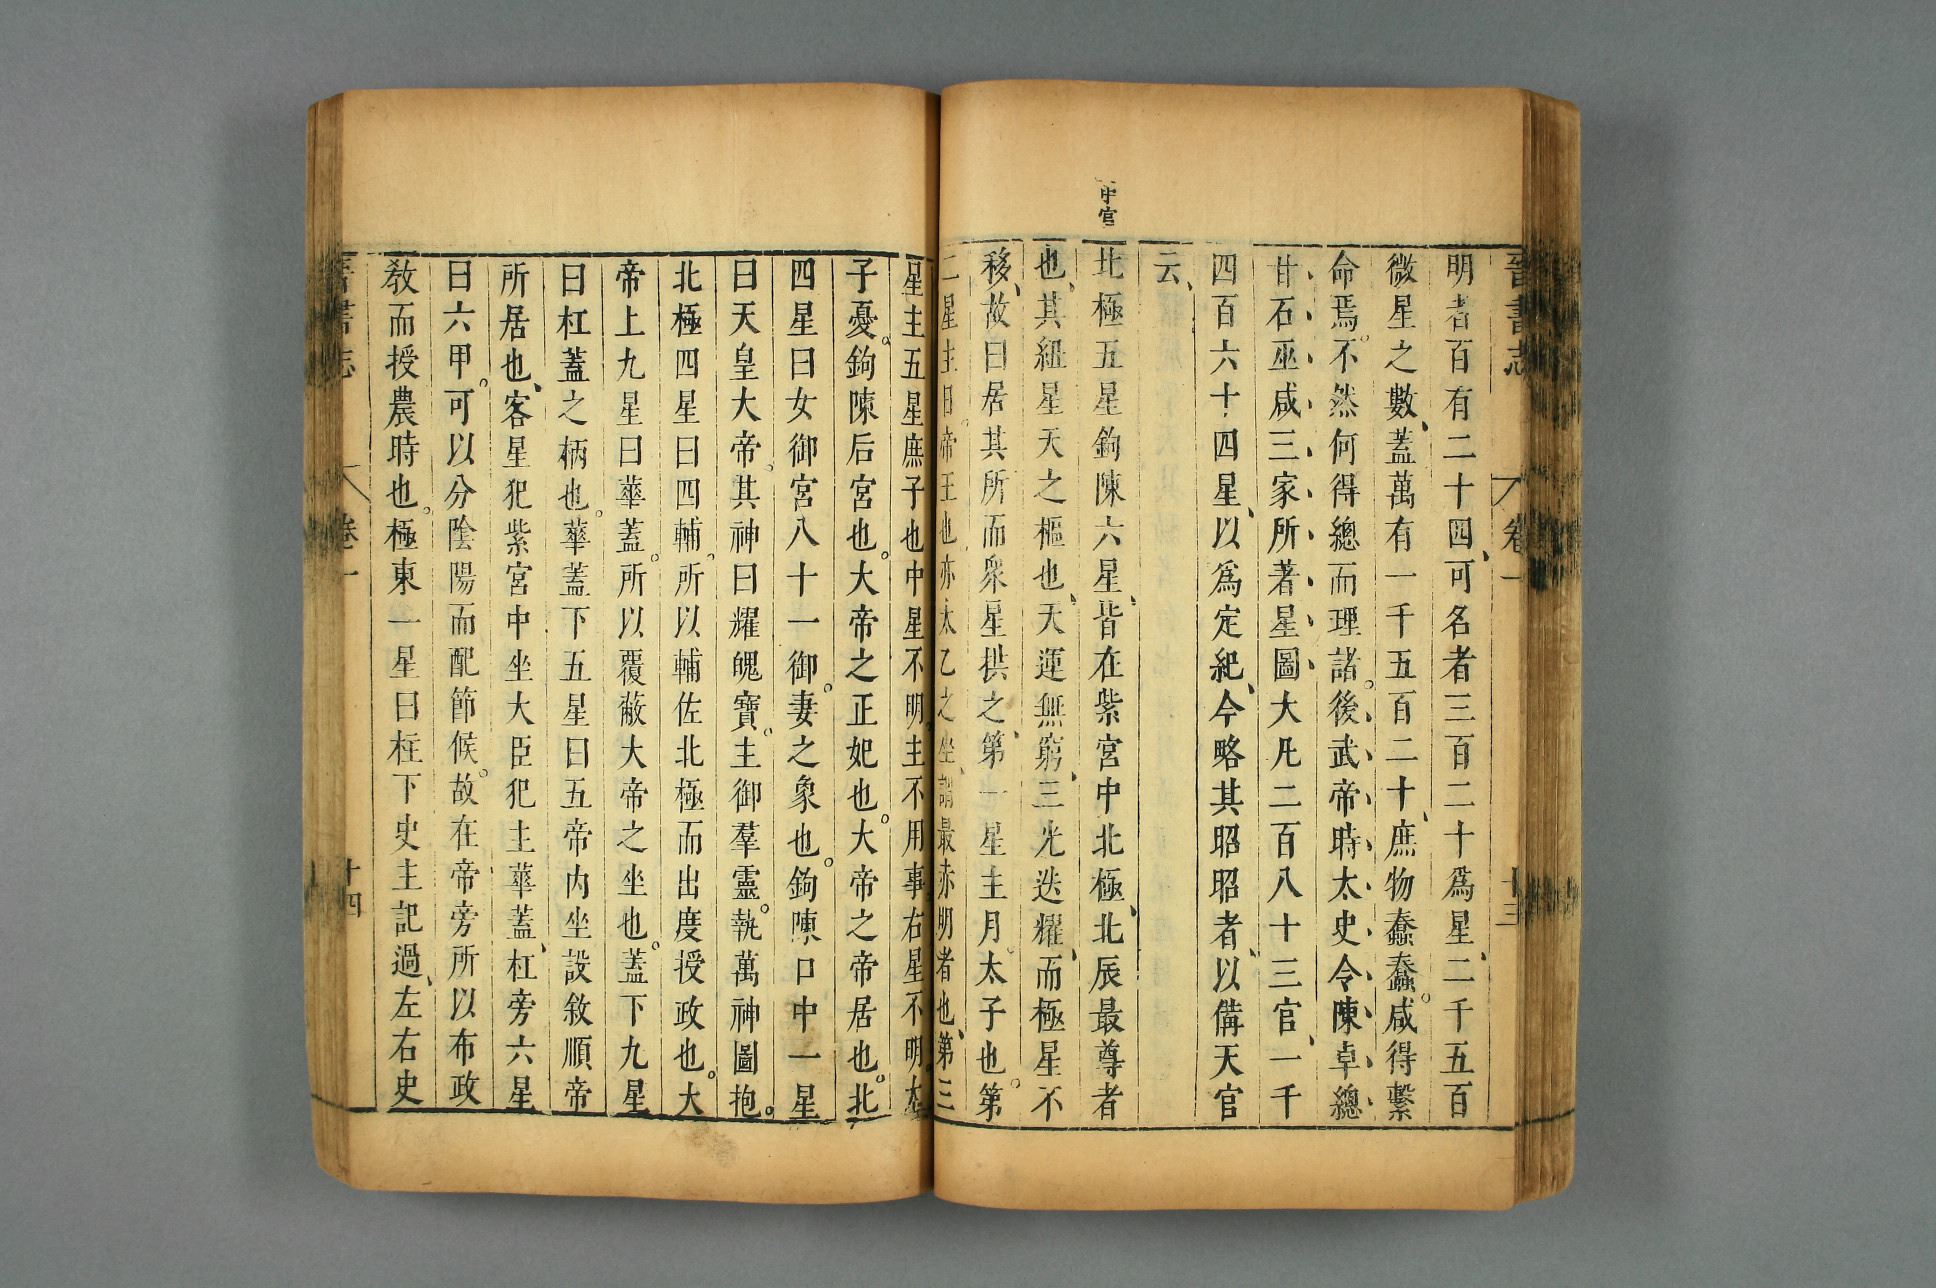 晉書志 卷一 十三
明者百有二十四可名者三百二十爲星二千五百
微星之數蓋萬有一千五百二十庶物蠢蠢咸得繫
命焉不然何得總而理諸後武帝時太史令陳卓總
甘石巫咸三家所著星圖大凡二百八十三官一千
四百六十四星以爲定紀今略其昭昭者以備天官
云
中宮
北極五星鉤陳六星皆在紫宮中北極北辰最尊者
也其紐星天之樞也天運無窮三光迭耀而極星不
移故曰居其所而衆星拱之第一星主月太子也第
二星主日帝王也亦太乙之坐謂最赤明者也第三
星主五星庶子也中星不明主不用事右星不明太
子憂鉤陳后宮也大帝之正妃也大帝之帝居也北
四星曰女御宮八十一御妻之象也鉤陳口中一星
曰天皇大帝其神曰耀魄寶主御羣靈執萬神圖抱
北極四星曰四輔所以輔佐北極而出度授政也大
帝上九星曰華蓋所以覆蔽大帝之坐也蓋下九星
曰杠蓋之柄也華蓋下五星曰五帝內坐設敘順帝
所居也客星犯紫宮中坐大臣犯主華蓋杠旁六星
曰六甲可以分陰陽而配節候故在帝旁所以布政
敎而授農時也極東一星曰柱下史主記過左右史
晉書志 卷一 十四